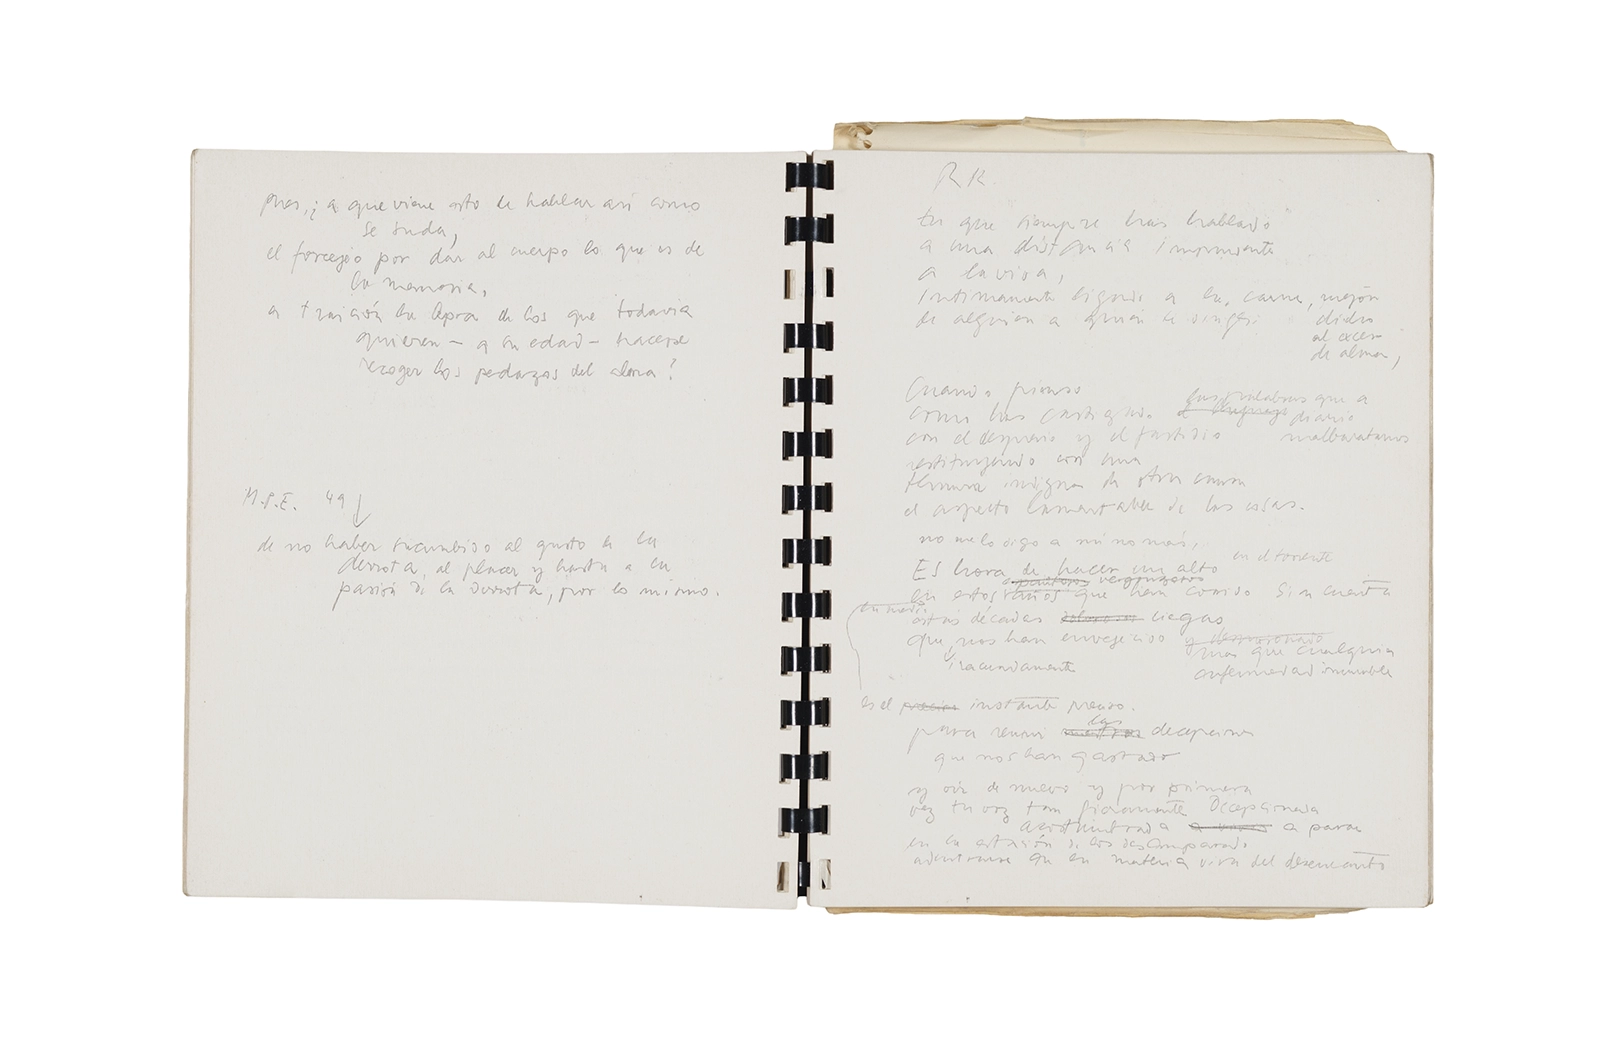 pues, ¿a que viene esto de hablar así como
se suda,
el forcejeo por dar al cuerpo lo que es de
la memoria,
a traición la lepra de los que todavía
quieren – a su edad – hacerse
recoger los pedazos del alma?
M.S.E. 49
de no haber sucumbido al gusto de la
derrota, al placer y hasta a la
pasión de la derrota, por lo mismo.
R K.
tu que siempre has hablado
a una distancia imprudente
a la vida,
intimamente ligado a la carne, mejor
de alguien a quien se
dicho
al
de alma,
Cuando pienso
las palabras que a
como has castigado
diario
con el desprecio y el fastidio
malbaratamos
restituyendo con una
ternura indigna de otra causa
el aspecto lamentable de las cosas.
no me lo digo a mi no más,
Es hora de hacer un alto
en el torrente
vergonzoso
en estos años que han corrido sin cuenta
en medio
estas décadas ciegas
que nos han envejecido
mas que cualquier
iracundamente
enfermedad incurable
es el instante preciso.
para reunir las decepciones
que nos han gastado
y oir de nuevo y por primera
vez tu voz tan decepcionada
acostumbrada a
en la estación de los desamparados
en la materia viva del desencanto